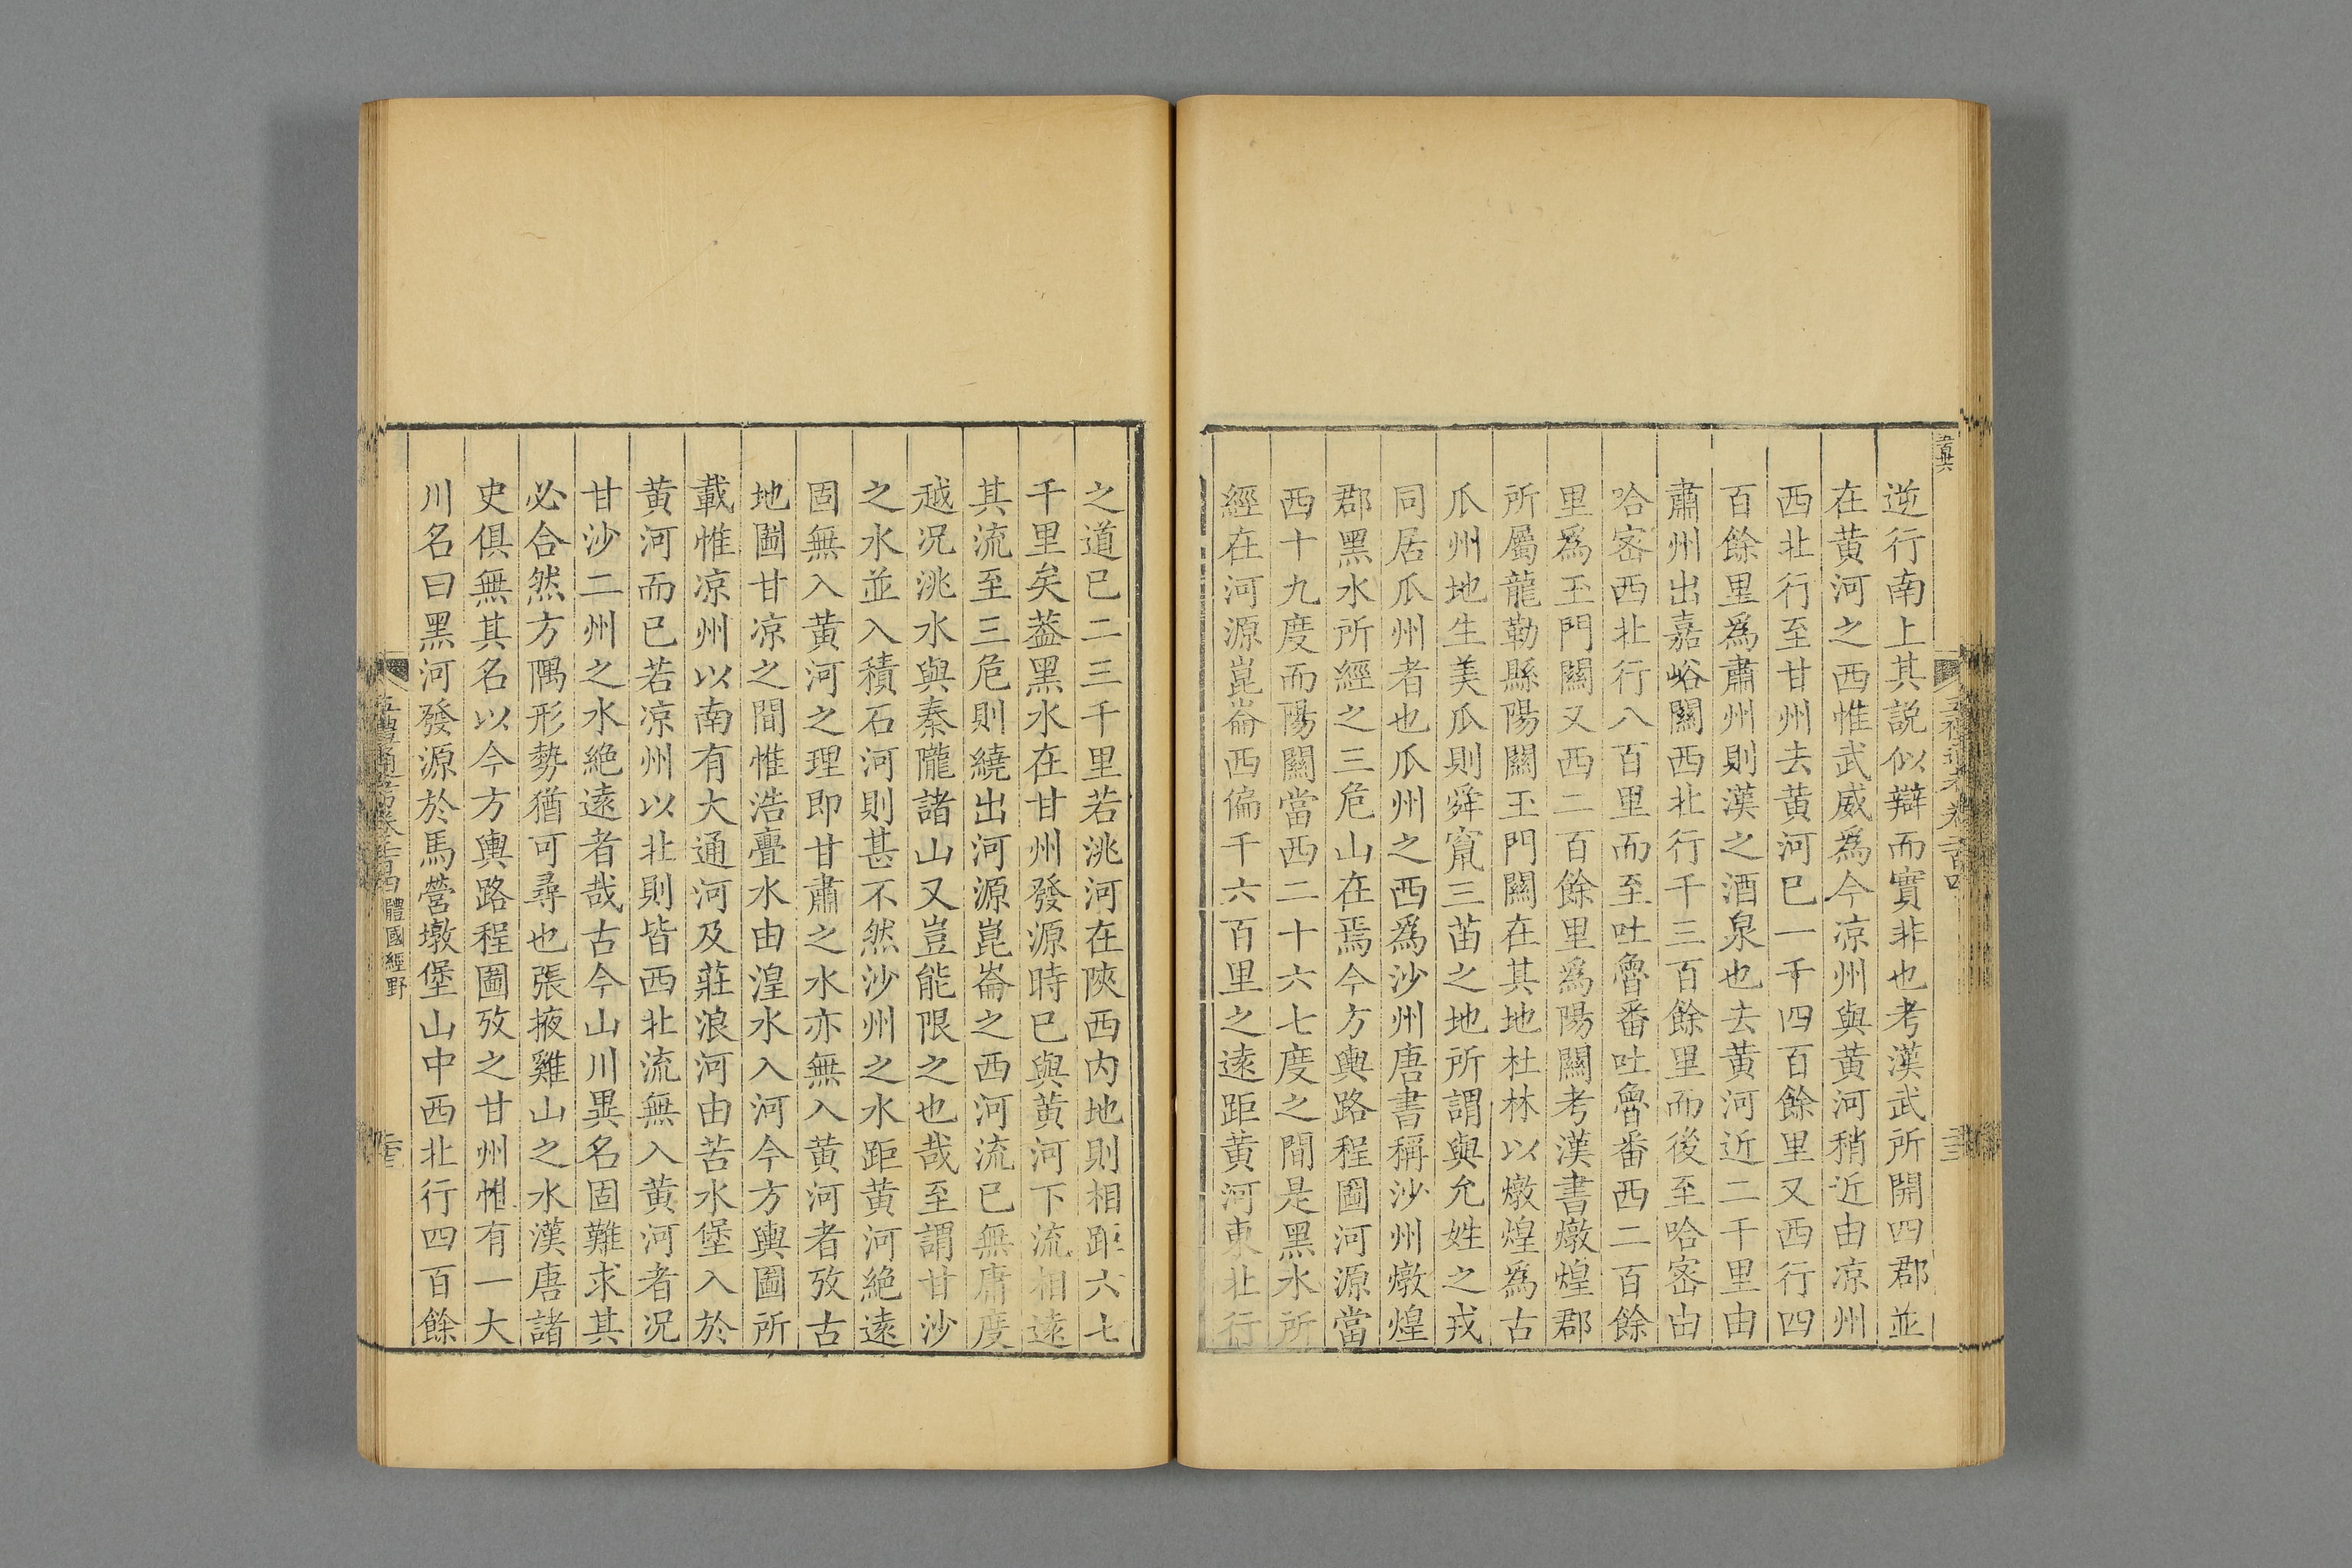 逆行南上其説似辯而實非也考漢武所開四郡並
在黄河之西惟武威爲今凉州與黄河稍近由凉州
西北行至甘州去黄河已一千四百餘里又西行四
百餘里爲肅州則漢之酒泉也去黄河近二千里由
肅州出嘉峪關西北行千三百餘里而後至哈宻由
哈宻西北行八百里而至吐魯番吐魯番西二百餘
里爲玉門關又西二百餘里爲陽關考漢書燉煌郡
所屬龍勒縣陽關玉門關在其地杜林以燉煌爲古
瓜州地生美瓜則舜竄三苗之地所謂與允姓之戎
同居瓜州者也瓜州之西爲沙州唐書稱沙州燉煌
郡黑水所經之三危山在焉今方輿路程圖河源當
西十九度而陽關當西二十六七度之間是黑水所
經在河源崑崙西偏千六百里之遠距黄河東北行
之道已二三千里若洮河在陜西内地則相距六七
千里矣葢黑水在甘州發源時已與黄河下流相遠
其流至三危則繞出河源崑崙之西河流已無庸度
越况洮水與秦隴諸山又豈能限之也哉至謂甘沙
之水並入積石河則甚不然沙州之水距黄河絶遠
固無入黄河之理即甘肅之水亦無入黄河者攷古
地圖甘凉之間惟浩亹水由湟水入河今方輿圖所
載惟凉州以南有大通河及莊浪河由苦水堡入於
黄河而已若凉州以北則皆西北流無入黄河者况
甘沙二州之水絶遠者哉古今山川異名固難求其
必合然方隅形勢猶可尋也張掖雞山之水漢唐諸
史俱無其名以今方輿路程圖攷之甘州惟有一大
川名曰黑河發源於馬營墩堡山中西北行四百餘
體國經野